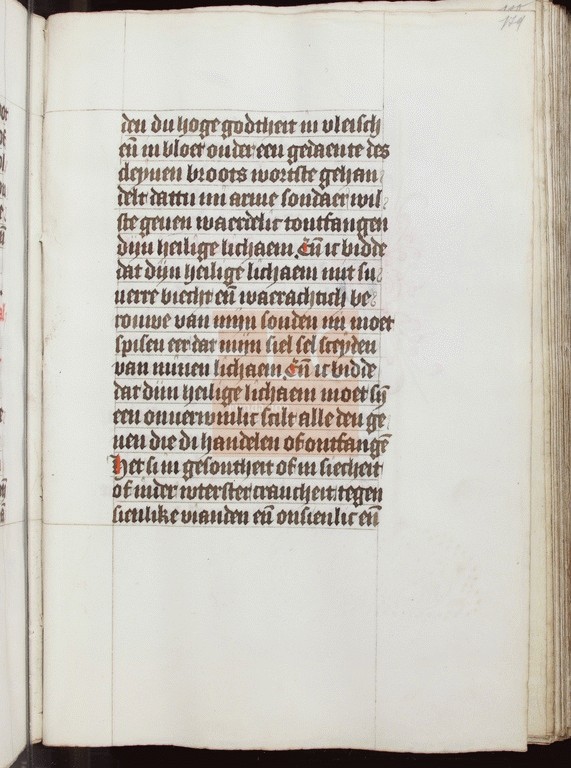 179
den du hoge godtheit in vleisch
eñ in bloet onder een gedaente des
cleynen broots wortste gehan⸗
delt dattu mi arme sondaer wil⸗
ste geuen waerdelic tontfangen
dijn heilige lichaem. Eñ ic bidde
dat dijn heilige lichaem mit su⸗
uerre biecht eñ waerachtich be⸗
rouwe van mijn sonden mi moet
spisen eer dat mijn siel sel sceyden
van minen lichaem. Eñ ic bidde
dat dijn heilige lichaem moet sijn
een onuerwinlic scilt alle den ge
nen die di handelen of ontfangē
Het si in gesontheit of in siecheit
of inder wterster crancheit tegen
sienlike vianden eñ onsienlic eñ